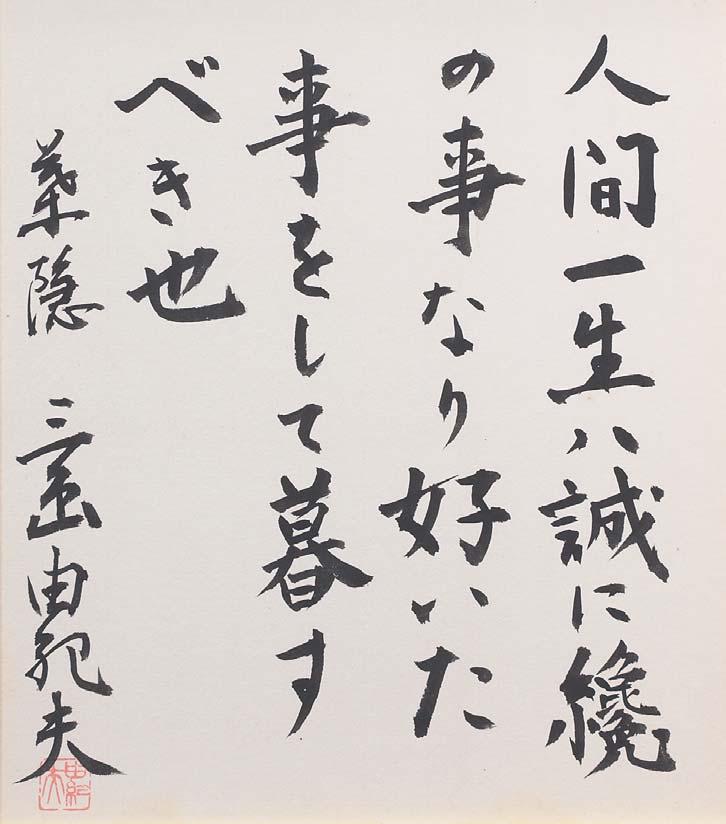 人間一生ハ誠に纔
の事なり好いた
事をして暮す
べき也
葉隠 三島由紀夫
由紀夫